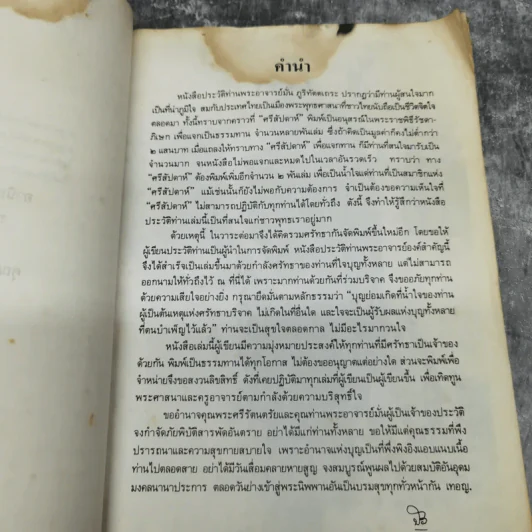 คำนำ
หนังสือประวัติท่านพระอาจารย์มั่น ภูริทัตตเถระ ปรากฏว่ามีท่านผู้สนใจมาก
เป็นที่น่าภูมิใจ สมกับประเทศไทยเป็นเมืองพระพุทธศาสนาที่ชาวไทยนับถือเป็นชีวิตจิตใจ
ตลอดมา ทั้งนี้ทราบจากคราวที่ "ศรีสัปดาห์" พิมพ์เป็นอนุสรณ์ในพระราชพิธีรัชดา-
ภิเษก เพื่อแจกเป็นธรรมทาน จำนวนหลายพันเล่ม ซึ่งถ้าคิดเป็นมูลค่าก็คงไม่ต่ำกว่า
๒ แสนบาท เมื่อแถลงให้ทราบทาง "ศรีสัปดาห์" เพื่อแจกทาน ก็มีท่านที่สนใจมารับเป็น
จำนวนมาก จนหนังสือไม่พอแจกและหมดไปในเวลาอันรวดเร็ว ทราบว่า ทาง
"ศรีสัปดาห์" ต้องพิมพ์เพิ่มอีกจำนวน ๒ พันเล่ม เพื่อเป็นน้ำใจแด่ท่านที่เป็นสมาชิกแห่ง
"ศรีสัปดาห์" แม้เช่นนั้นก็ยังไม่พอกับความต้องการ จำเป็นต้องขอความเห็นใจที่
"ศรีสัปดาห์" ไม่สามารถปฏิบัติกับทุกท่านได้โดยทั่วถึง ดังนี้ จึงทำให้รู้สึกว่าหนังสือ
ประวัติท่านเล่มนี้เป็นที่สนใจแก่ชาวพุทธเราอยู่มาก
ด้วยเหตุนี้ ในวาระต่อมาจึงได้คิดรวมศรัทธากันจัดพิมพ์ขึ้นใหม่อีก โดยขอให้
ผู้เขียนประวัติท่านเป็นผู้นำในการจัดพิมพ์ หนังสือประวัติท่านพระอาจารย์องค์สำคัญนี้
จึงได้สำเร็จเป็นเล่มขึ้นมาด้วยกำลังศรัทธาของท่านที่ใจบุญทั้งหลาย แต่ไม่สามารถ
ออกนามให้ทั่วถึงไว้ ณ ที่นี้ได้ เพราะมากท่านด้วยกันที่ร่วมบริจาค จึงขออภัยทุกท่าน
ด้วยความเสียใจอย่างยิ่ง กรุณายึดมั่นตามหลักธรรมว่า "บุญย่อมเกิดที่น้ำใจของท่าน
ผู้เป็นต้นเหตุแห่งศรัทธาบริจาค ไม่เกิดในที่อื่นใด และใจจะเป็นผู้รับผลแห่งบุญทั้งหลาย
ที่ตนบำเพ็ญไว้แล้ว" ท่านจะเป็นสุขใจตลอดกาล ไม่มีอะไรมากวนใจ
หนังสือเล่มนี้ผู้เขียนมีความมุ่งหมายประสงค์ให้ทุกท่านที่มีศรัทธาเป็นเจ้าของ
ด้วยกัน พิมพ์เป็นธรรมทานได้ทุกโอกาส ไม่ต้องขออนุญาตแต่อย่างใด ส่วนจะพิมพ์เพื่อ
จำหน่ายจึงขอสงวนลิขสิทธิ์ ดังที่เคยปฏิบัติมาทุกเล่มที่ผู้เขียนเป็นผู้เขียนขึ้น เพื่อเทิดทูน
พระศาสนาและครูอาจารย์ตามกำลังด้วยความบริสุทธิ์ใจ
ขออำนาจคุณพระศรีรัตนตรัยและคุณท่านพระอาจารย์มั่นผู้เป็นเจ้าของประวัติ
จงกำจัดภัยพิบัติสารพัดอันตราย อย่าได้มีแก่ท่านทั้งหลาย ขอให้มีแต่คุณธรรมที่พึง
ปรารถนาและความสุขกายสบายใจ เพราะอำนาจแห่งบุญเป็นที่พึ่งพิงอิงแอบแนบเนื้อ
ท่านไปตลอดสาย อย่าได้มีวันเสื่อมคลายหายสูญ จงสมบูรณ์พูนผลไปด้วยสมบัติอันอุดม
มงคลนานาประการ ตลอดวันย่างเข้าสู่พระนิพพานอันเป็นบรมสุขทุกทั่วหน้ากัน เทอญ.